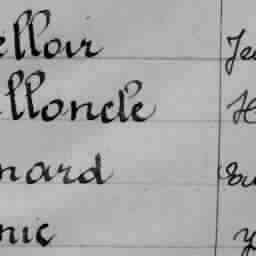 elloir Je
lloncle H
nard Su
nic y